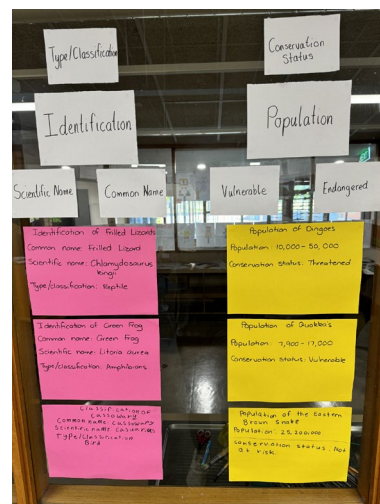 Type/Classification
Conservation
Status
Identification
Population
Scientific Name
Common Name
Vulnerable
Endangered
Identification of Frilled Lizards
Common name: Frilled Lizard
Scientific name: Chlamydosaurus
kingii
Type/classification: Reptile
Identification of Green Frog
Common name: Green Frog
Scientific name: Litoria aurea
Type/classification: Amphibians
Classification of
Cassowary
Common name: Cassowary
Scientific name: Casuarius
Type/Classification
Bird
Population of Dingoes
Population: 10,000-50,000
Conservation status: Threatened
Population of Quokka's
Population: 7,900-17,000
Conservation status: Vulnerable
Population of the Eastern
Brown Snake
Population: 25,200,000
Conservation status: Not
at risk.